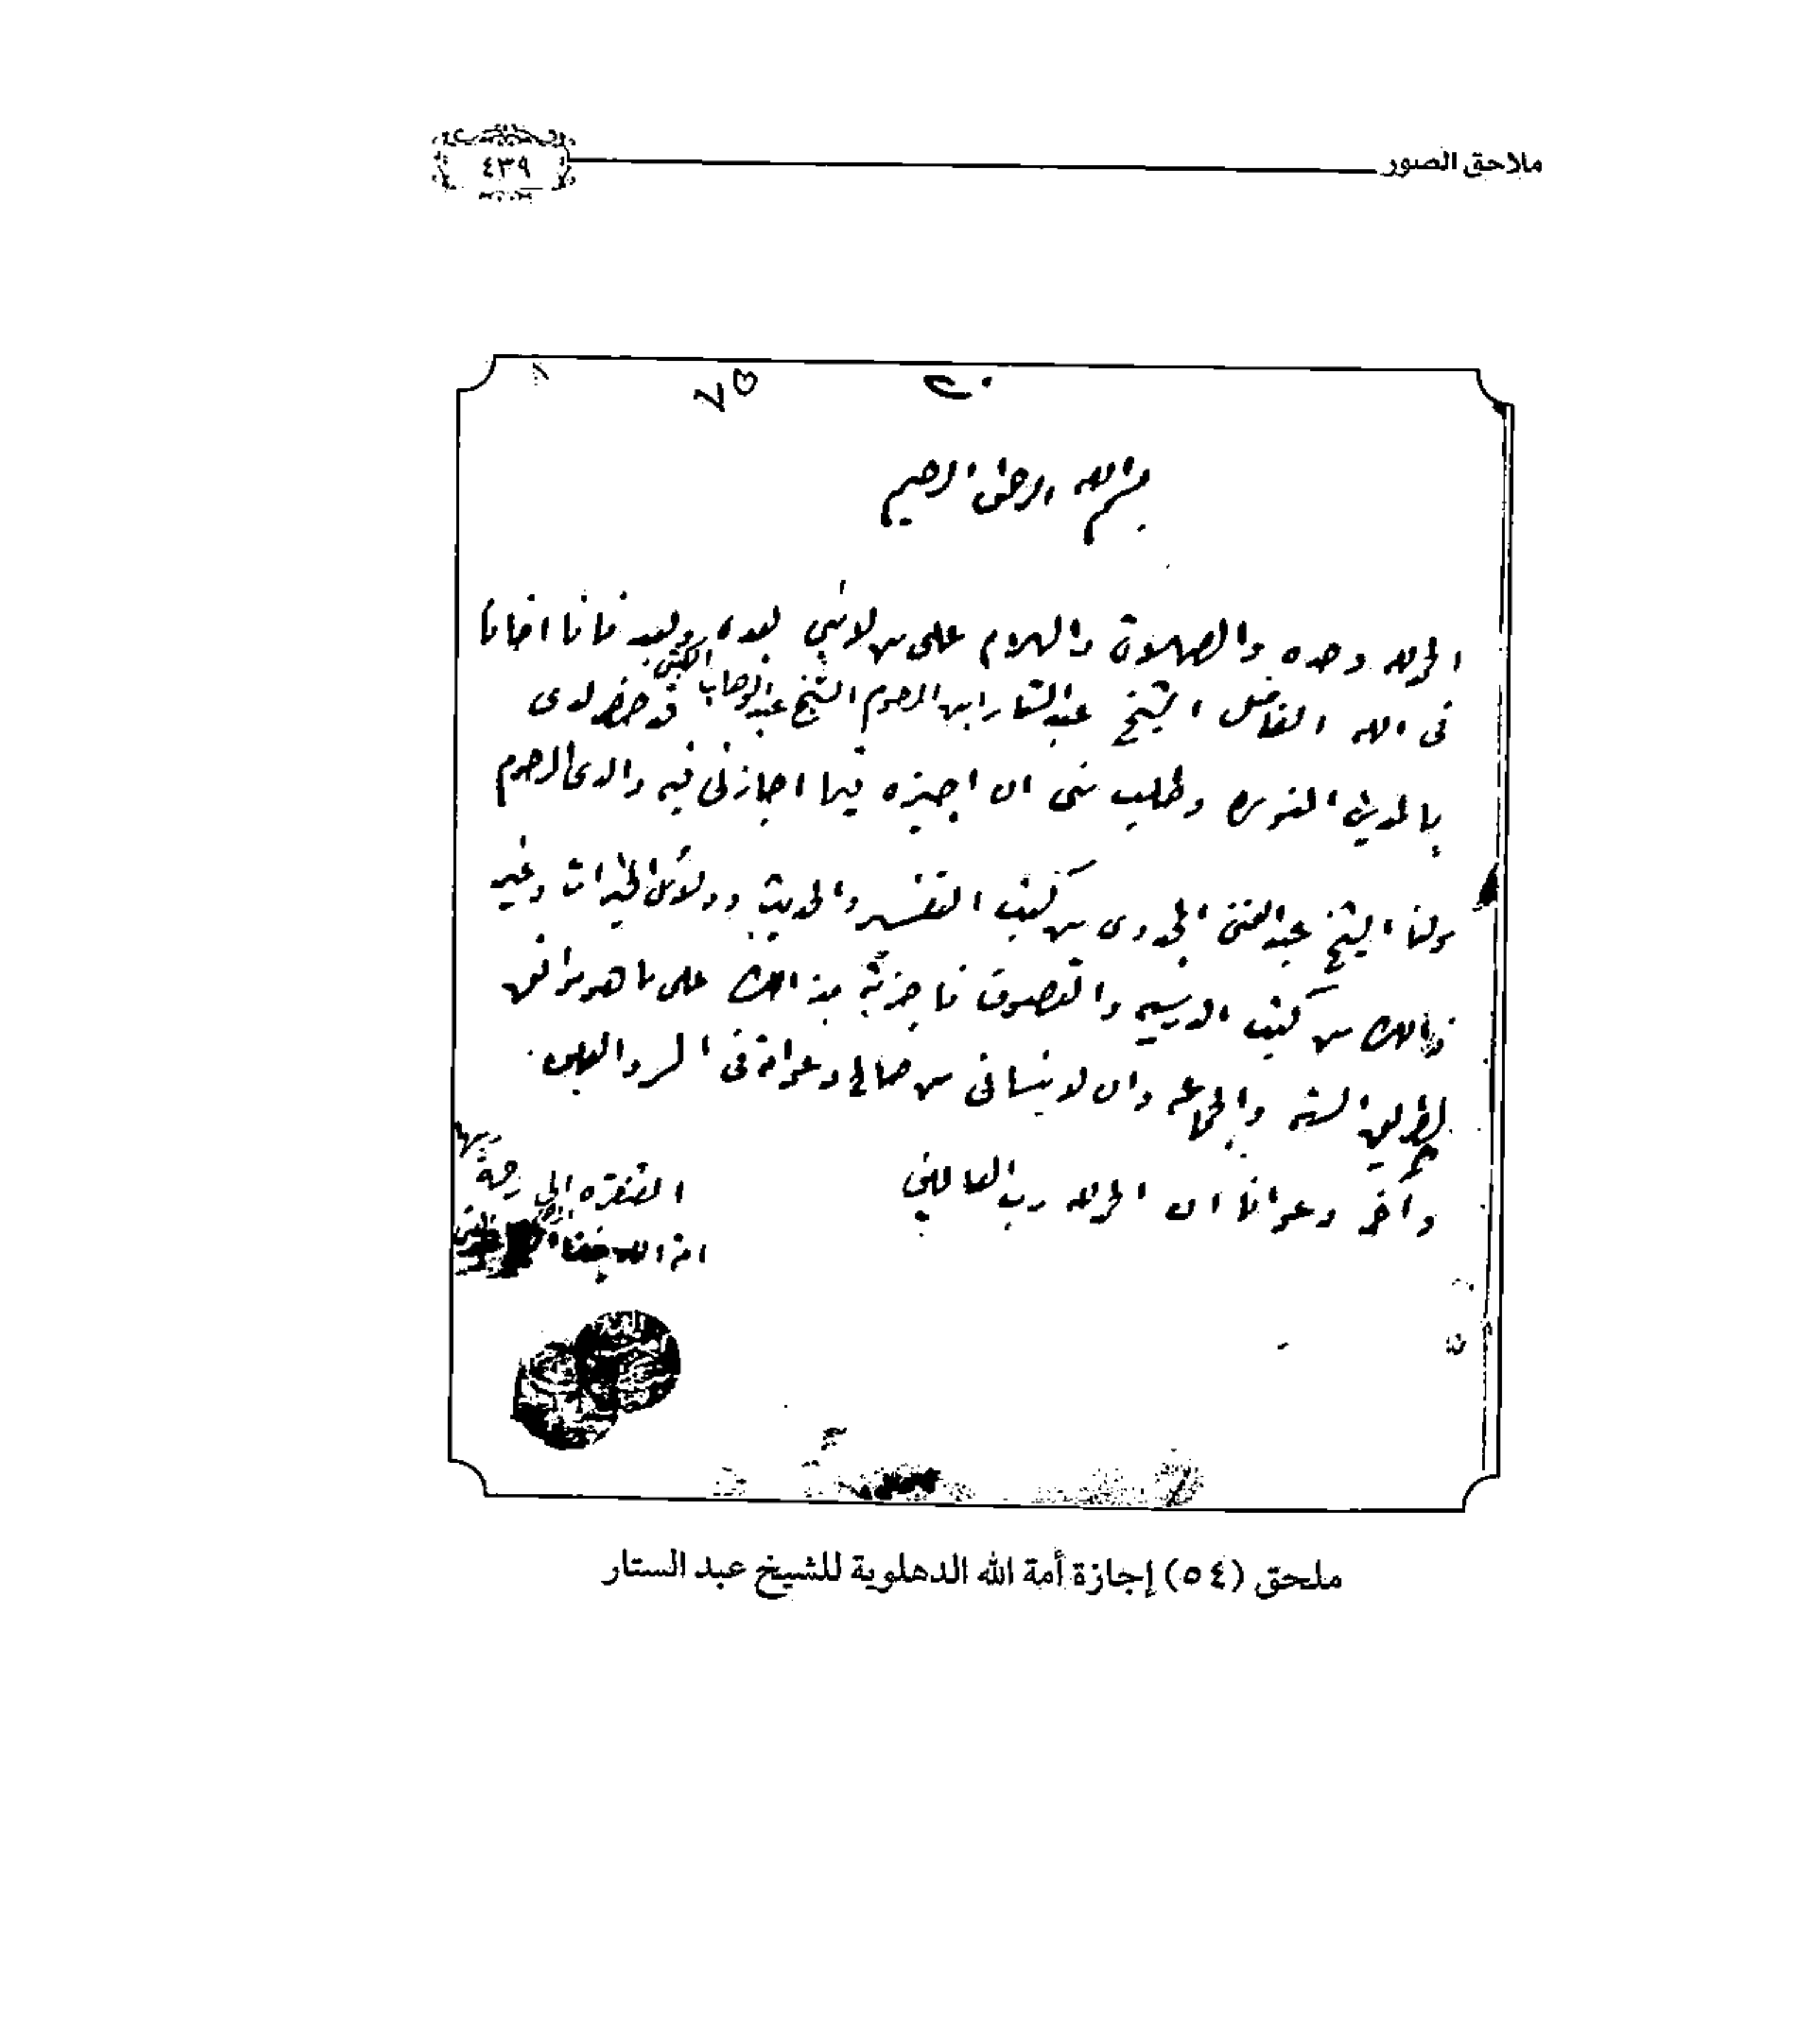 ملاحق الصور
٤٣٩
٧٥
بسم الله الرحمن الرحيم
الحمد لله وحده والصلوة والسلام على من لا نبي بعده وبعد فانا اخانا
في الله الفاضل الشيخ عبد الستار ابن المرحوم الشيخ عبد الوهاب الكتبي قد حضر لدى
بالمدينة المنوره وطلب مني ان اجيزه فيما اجازني فيه والدى المرحوم
مولنا الشيخ عبد الغني المجددى من كتب التفسير والحديث ودلائل الخيرات وغير
ذالك من كتب الدرسيه والتصوف فاجزته بذالك على ما هو موافق
لطريق السنة والجماعة وان لا ينساني من صالح دعواته في السر
وآخر دعوانا ان الحمد لله رب العالمين
المفتقره الى رحمة
امة الله بنت
ملحق (٥٤) إجازة أمة الله الدهلوية للشيخ عبد الستار